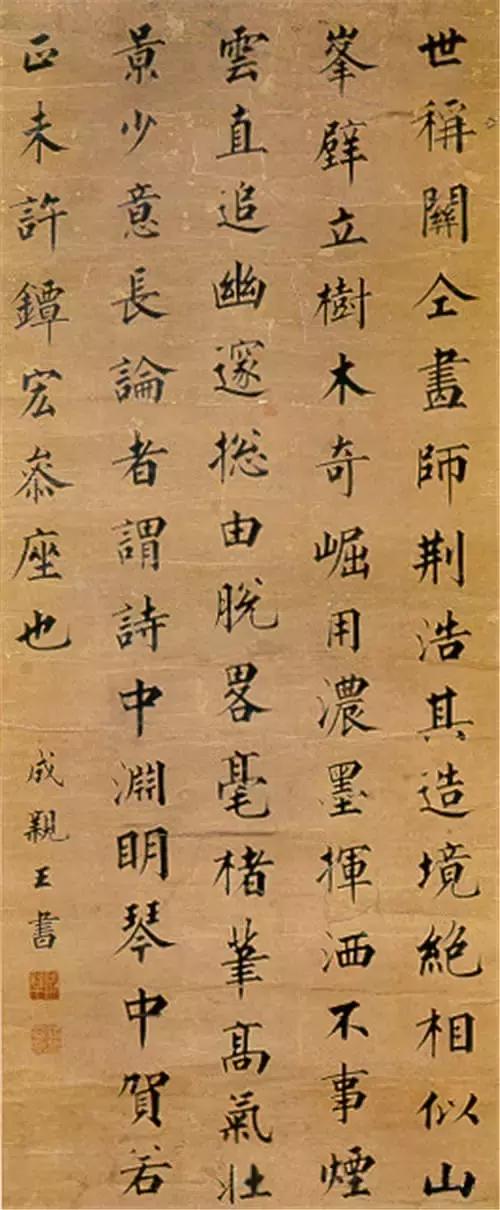 世稱關仝畫師荆浩其造境絶相似山
峯壁立樹木奇崛用濃墨揮洒不事煙
雲直追幽邃捴由脫畧毫楮筆高氣壯
景少意長論者謂詩中淵明琴中賀若
正未許鐔宏叅座也
成親王書